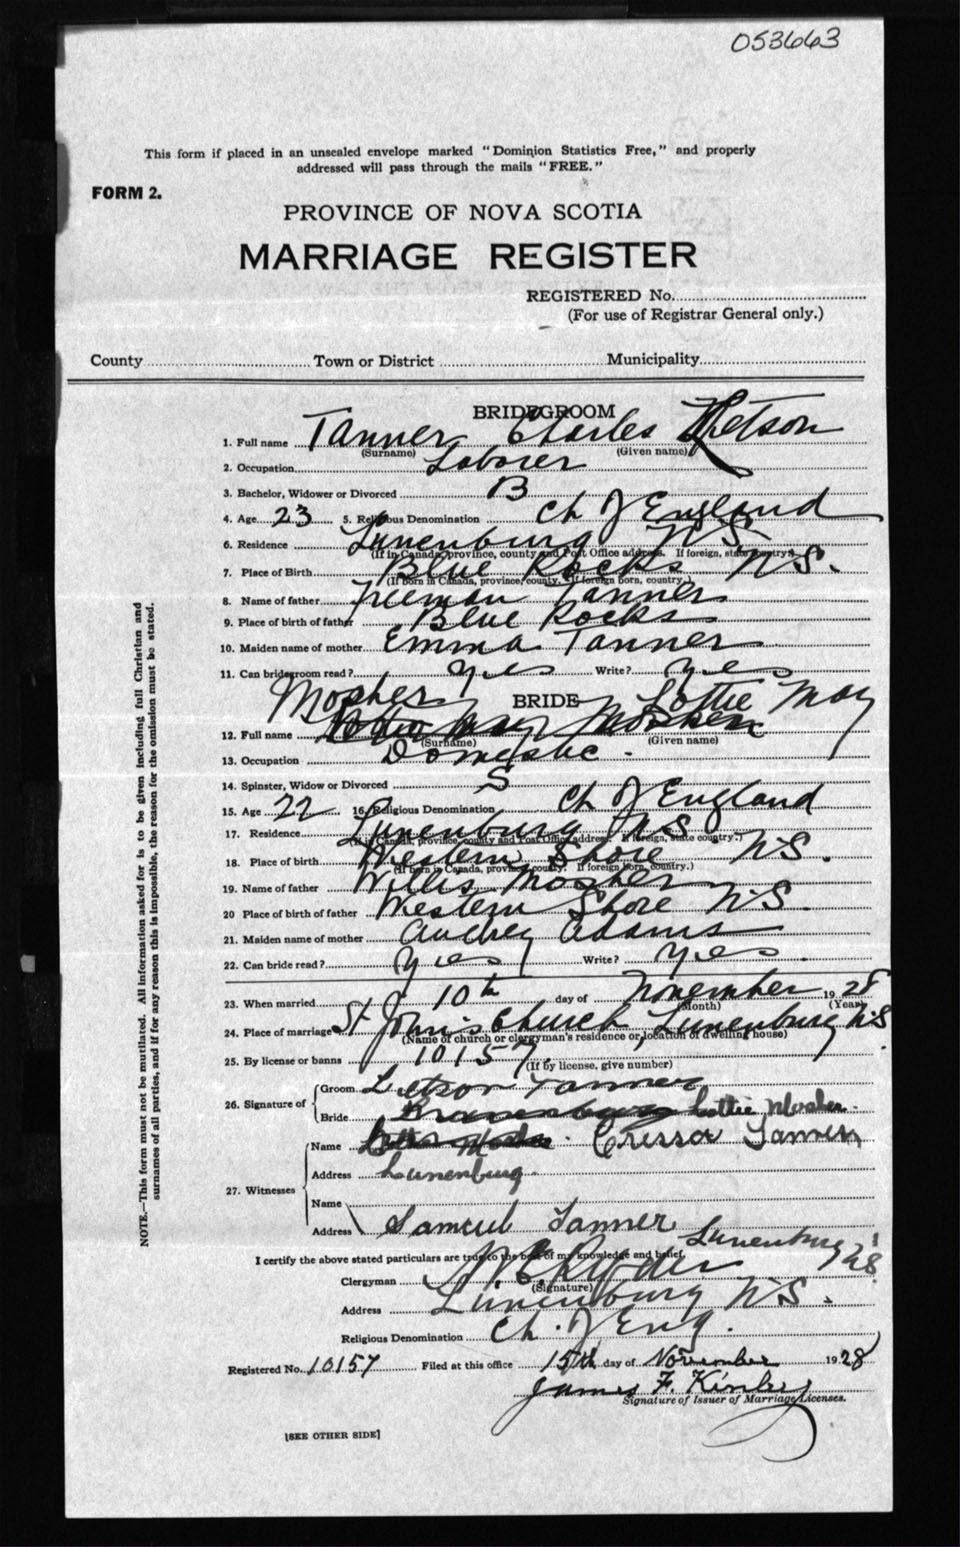 053663
This form if placed in an unsealed envelope marked "Dominion Statistics Free," and properly
addressed will pass through the mails "FREE."
FORM 2.
PROVINCE OF NOVA SCOTIA
MARRIAGE REGISTER
REGISTERED No.
(For use of Registrar General only.)
County Town or District Municipality
BRIDEGROOM
1. Full name Tanner Charles Letson
(Surname) (Given name)
2. Occupation Laborer
3. Bachelor, Widower or Divorced B
4. Age 23 5. Religious Denomination Ch of England
6. Residence Lunenburg N.S.
(If in Canada, province, county and Post Office address. If foreign, state country.)
7. Place of Birth Blue Rocks N.S.
(If born in Canada, province, county. If foreign born, country.)
8. Name of father Freeman Tanner
9. Place of birth of father Blue Rocks
10. Maiden name of mother Emma Tanner
11. Can bridegroom read? yes Write? yes
BRIDE
Mosher Lottie May
12. Full name Lottie May Mosher
(Surname) (Given name)
13. Occupation Domestic
14. Spinster, Widow or Divorced S
15. Age 22 16. Religious Denomination Ch of England
17. Residence Lunenburg N.S
(If in Canada, province, county and Post Office address. If foreign, state country.)
18. Place of birth Western Shore N.S.
(If born in Canada, province, county. If foreign born, country.)
19. Name of father Willis Mosher
20 Place of birth of father Western Shore N.S.
21. Maiden name of mother Audrey Adams
22. Can bride read? yes Write? yes
23. When married 10th day of November 1928
(Month) (Year)
24. Place of marriage St John's Church, Lunenburg N.S
(Name of church or clergyman's residence or location of dwelling house)
25. By license or banns 10157
(If by license, give number)
26. Signature of Groom Letson Tanner
Bride Lottie Mosher.
27. Witnesses Name Cressa Tanner
Address Lunenburg
Name
Address Samuel Tanner Lunenburg
I certify the above stated particulars are true to the best of my knowledge and belief.
Clergyman
(Signature)
Address Lunenburg N.S.
Religious Denomination Ch. of Eng.
Registered No. 10157 Filed at this office 15th day of November 1928
James F. Kinley
Signature of Issuer of Marriage Licenses.
[SEE OTHER SIDE]
NOTE.—This form must not be mutilated. All information asked for is to be given including full Christian and
surnames of all parties, and if for any reason this is impossible, the reason for the omission must be stated.